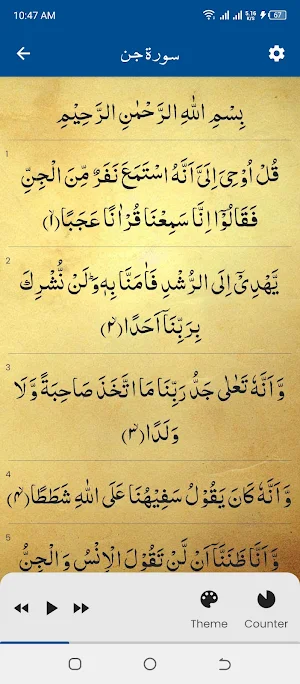 10:47 AM
5.16 K/s
67
سورة جن
بِسْمِ اللهِ الرَّحْمٰنِ الرَّحِيْمِ
1
قُلْ اُوْحِىَ اِلَىَّ اَنَّهُ اسْتَمَعَ نَفَرٌ مِّنَ الْجِنِّ
فَقَالُوْٓا اِنَّا سَمِعْنَا قُرْاٰنًا عَجَبًا ﴿۱﴾
2
يَّهْدِىْٓ اِلَى الرُّشْدِ فَاٰمَنَّا بِهٖ ؕ وَلَنْ نُّشْرِكَ
بِرَبِّنَاۤ اَحَدًا ﴿۲﴾
3
وَّ اَنَّهٗ تَعٰلٰى جَدُّ رَبِّنَا مَا اتَّخَذَ صَاحِبَةً وَّ لَا
وَلَدًا ﴿۳﴾
4
وَّ اَنَّهٗ كَانَ يَقُوْلُ سَفِيْهُنَا عَلَى اللهِ شَطَطًا ﴿۴﴾
5
وَّ اَنَّا ظَنَنَّاۤ اَنْ لَّنْ تَقُوْلَ الْاِنْسُ وَ الْجِنُّ
Theme
Counter